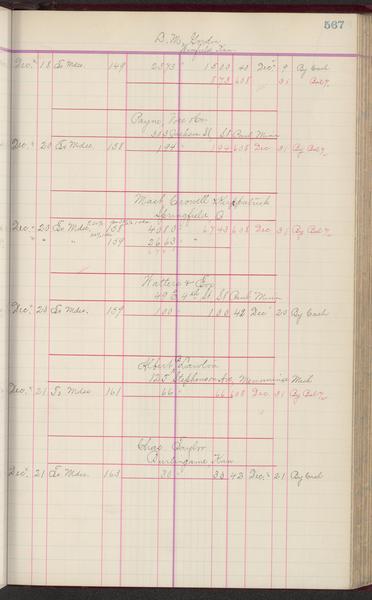 567
D. M.
Winfield Kan
Dec. 18 To Mdse. 149 2373 1500 42 Dec. 9 By Cash
873 608 31 Bal
Payne, & Co
Jackson St St Paul Minn
Dec. 20 To Mdse. 158 194 194 608 Dec 31 By Bal
Mast Crowell & Kirkpatrick
Springfield O
Dec. 20 To Mdse. 158 4080 6743 608 Dec 31 By Bal
" " " 159 2663
Watters & Co
4th St St Paul Minn
Dec. 20 To Mdse. 159 100 100 42 Dec. 20 By Cash
Albert
125 Stephenson Ave, Menominee Mich
Dec. 21 To Mdse 161 66 66 608 Dec 31 By Bal
Chas. Taylor
Burlingame Kan
Dec. 21 To Mdse. 163 33 42 Dec. 21 By Cash